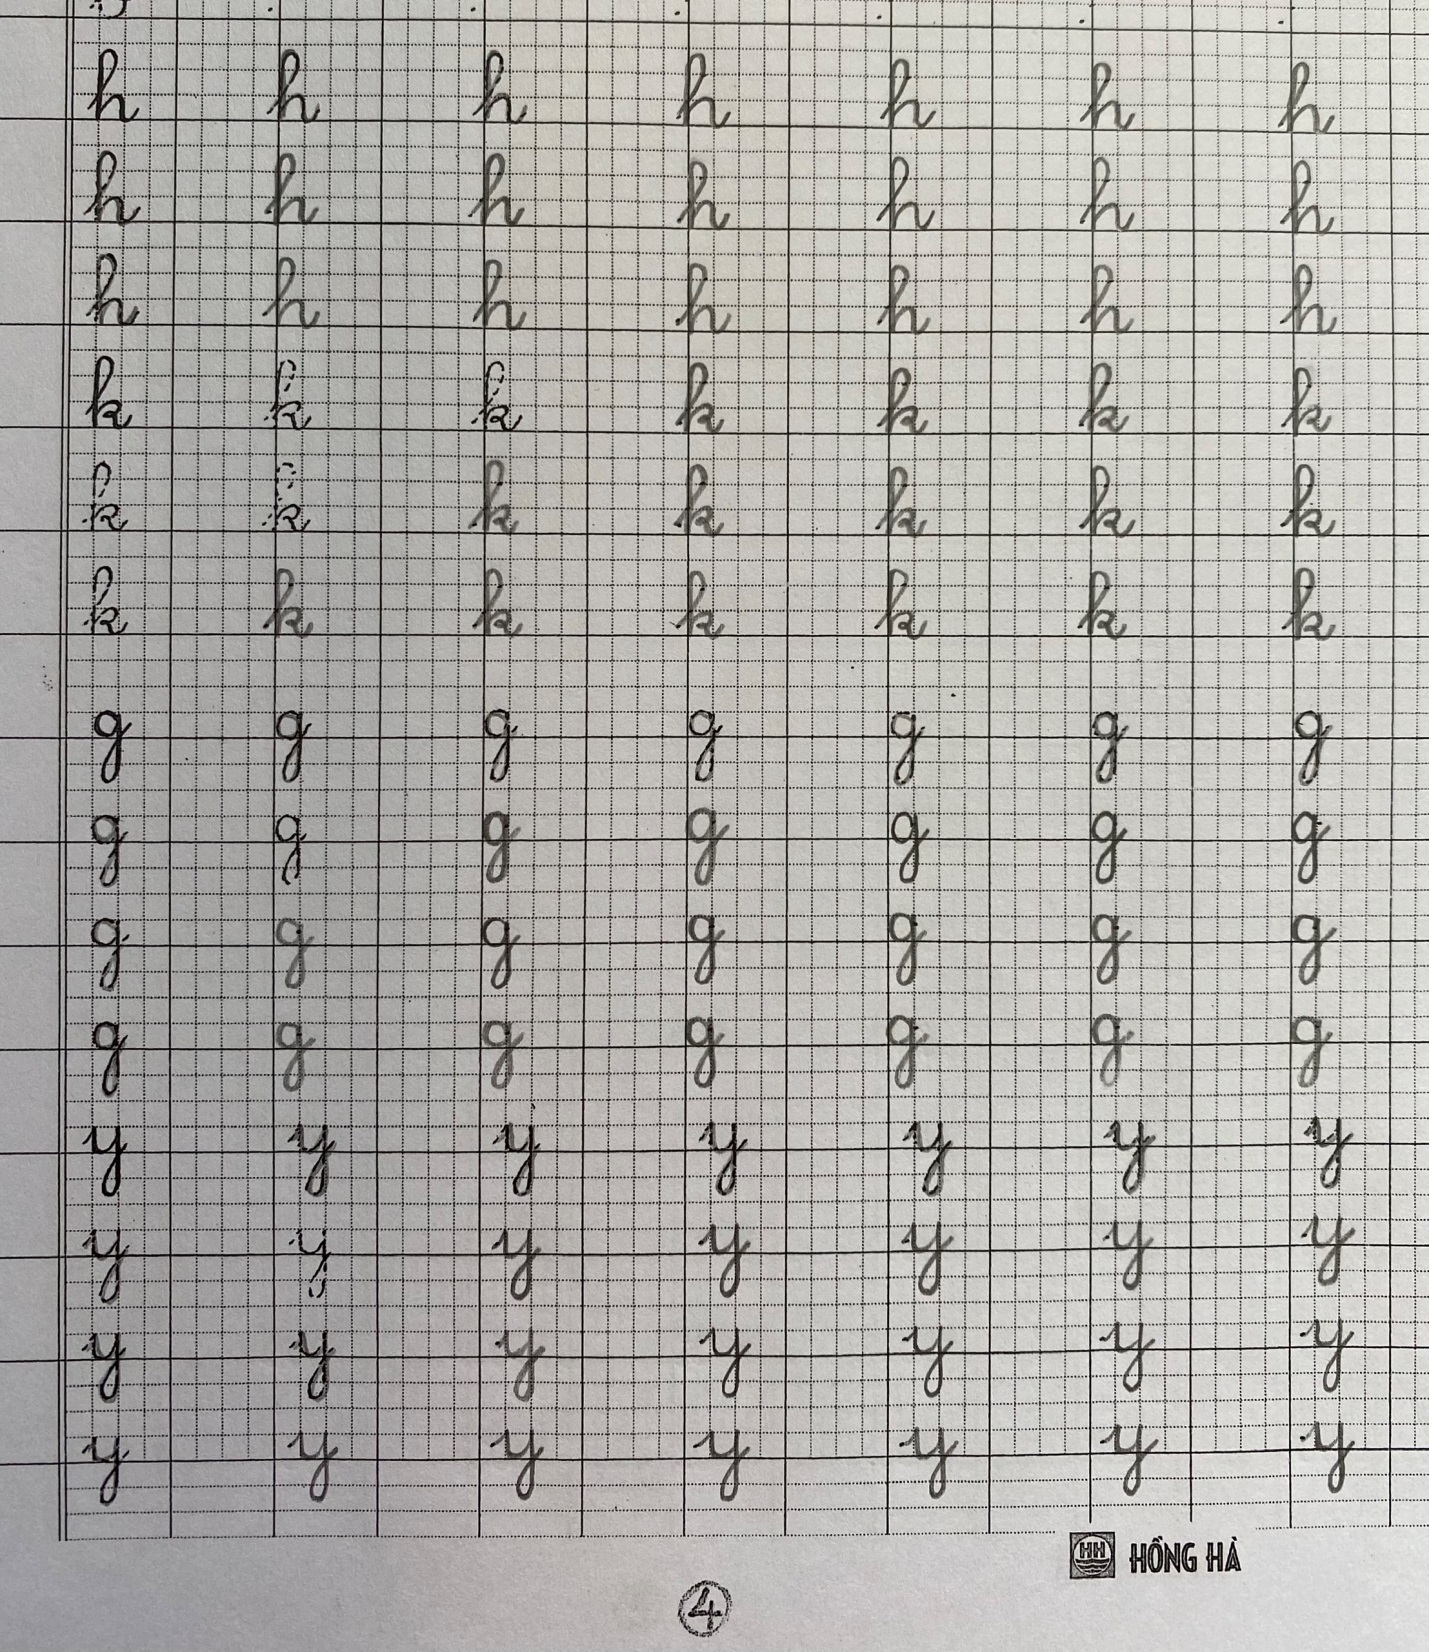 h h h h h h h
h h h h h h h
h h h h h h h
k k k k k k k
k k k k k k k
k k k k k k k
g g g g g g g
g g g g g g g
g g g g g g g
g g g g g g g
y y y y y y y
y y y y y y y
y y y y y y y
y y y y y y y
HH HỒNG HÀ
4